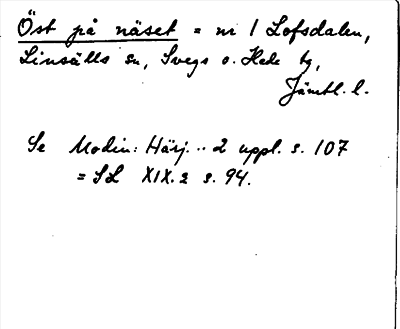 Öst på näset = nr 1 Lofsdalen,
Linsälls sn, Svegs o. Hede tg,
Jämtl. l.
Se Modin: Härj... 2 uppl. s. 107
= SL XIX.2 s. 94.